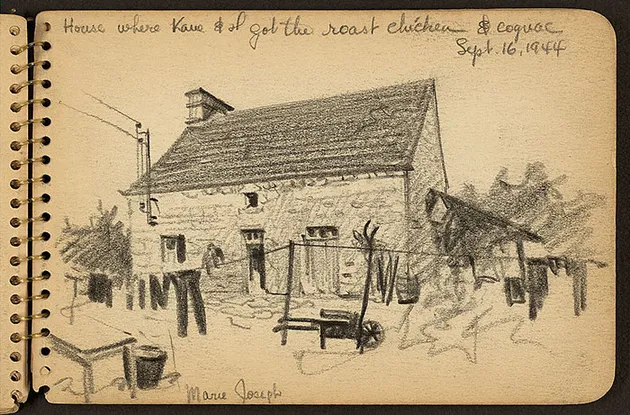 House where Kane & I got the roast chicken & cognac
Sept. 16, 1944
Marie Joseph